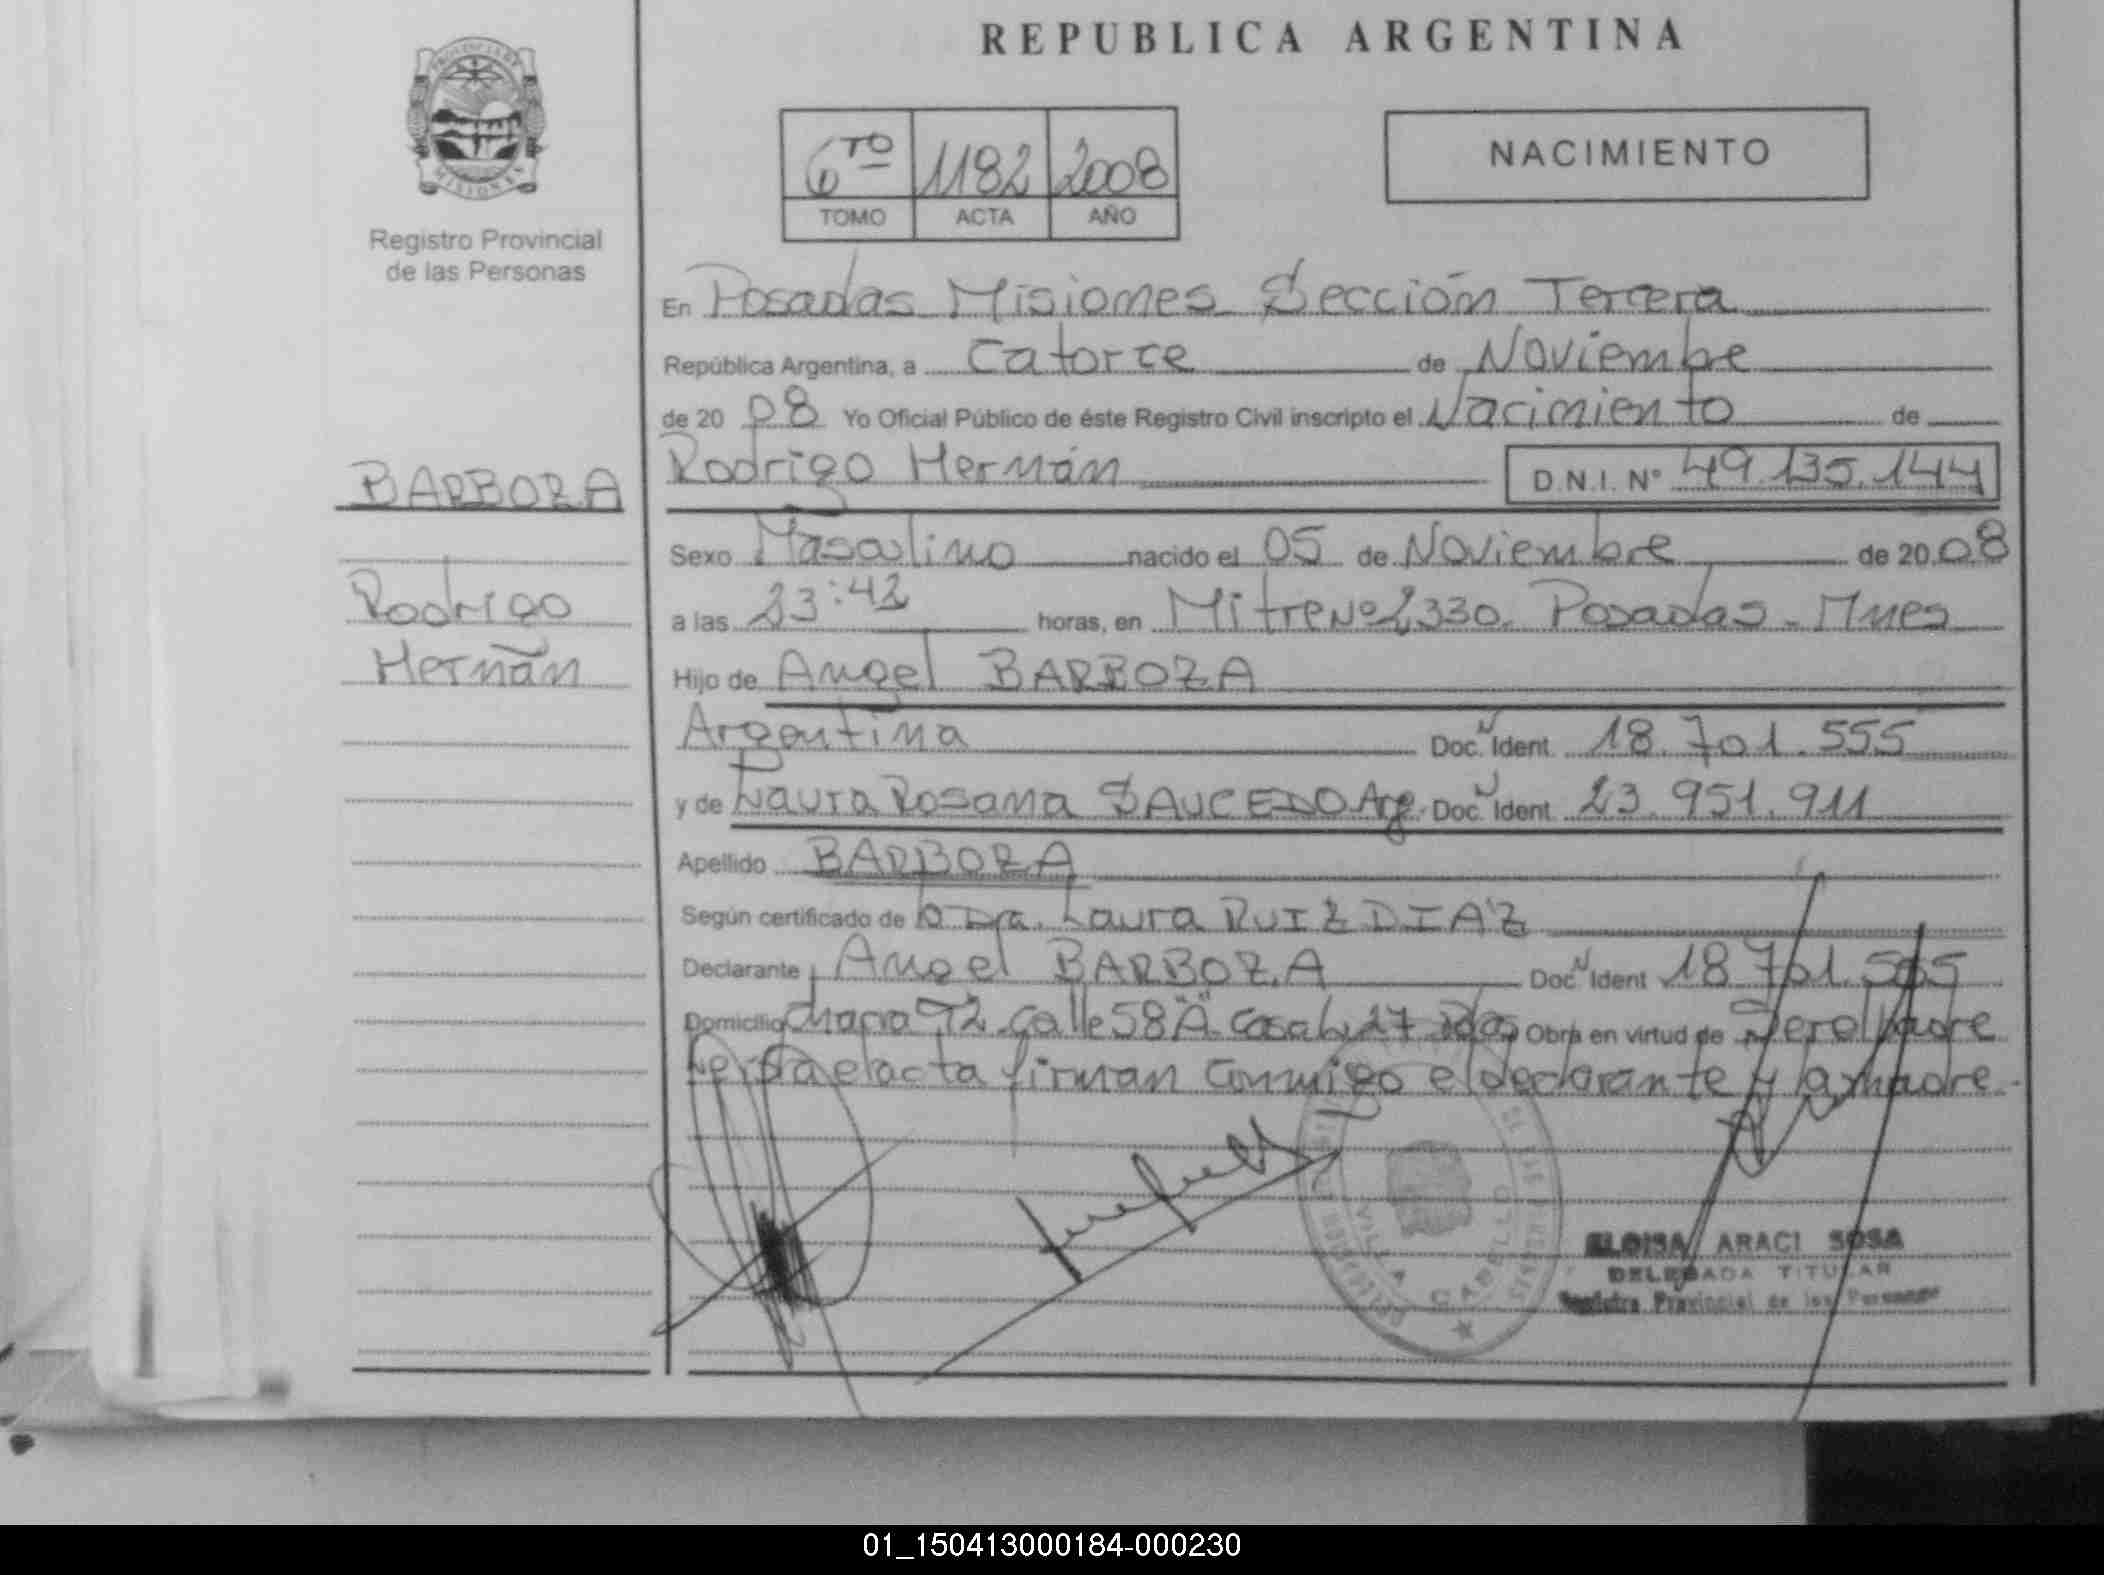 REPUBLICA ARGENTINA
PROVINCIA DE MISIONES
Registro Provincial
de las Personas
6TO 1182 2008
TOMO ACTA AÑO
NACIMIENTO
En Posadas Misiones Sección Tercera
República Argentina, a Catorce de Noviembre
de 20 08 Yo Oficial Público de éste Registro Civil inscripto el Nacimiento de
Rodrigo Hernán D.N.I. Nº 49.135.144
BARBOZA
Rodrigo
Hernán
Sexo Masculino nacido el 05 de Noviembre de 20 08
a las 23:42 horas, en Mitre Nº 2330. Posadas - Mnes
Hijo de Angel BARBOZA
Argentina Doc. N Ident. 18.701.555
y de Laura Rosana SAUCEDO Arg. Doc. N Ident. 23.951.911
Apellido BARBOZA
Según certificado de Dra. Laura RUIZ DIAZ
Declarante Angel BARBOZA Doc. N Ident 18.701.555
Domicilio Chacra 92 Calle 58 "A" Casa 27 Pdas Obra en virtud de Ser el Padre
Leida el acta firman conmigo el declarante y la madre.
VILLA CABELLO
ELOISA ARACI SOSA
DELEGADA TITULAR
Registro Provincial de las Personas
01_150413000184-000230